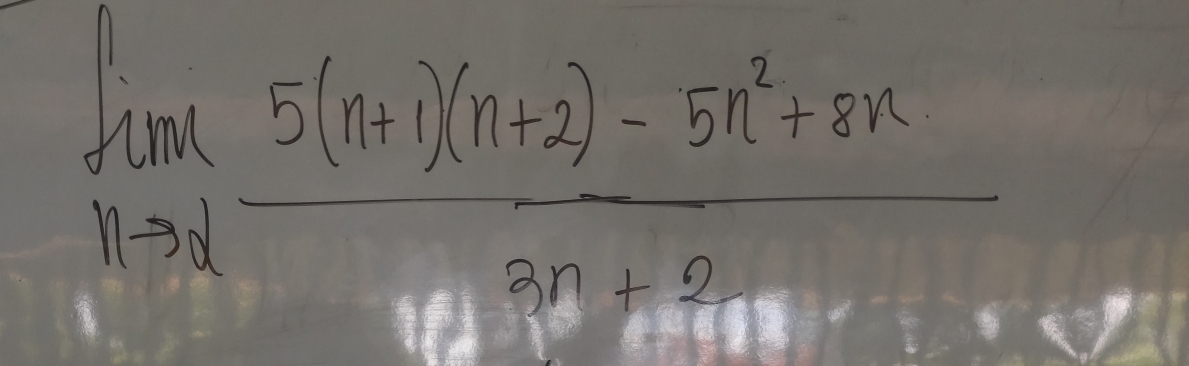 lim 5(n+1)(n+2) - 5n² + 8n
n→α 3n + 2